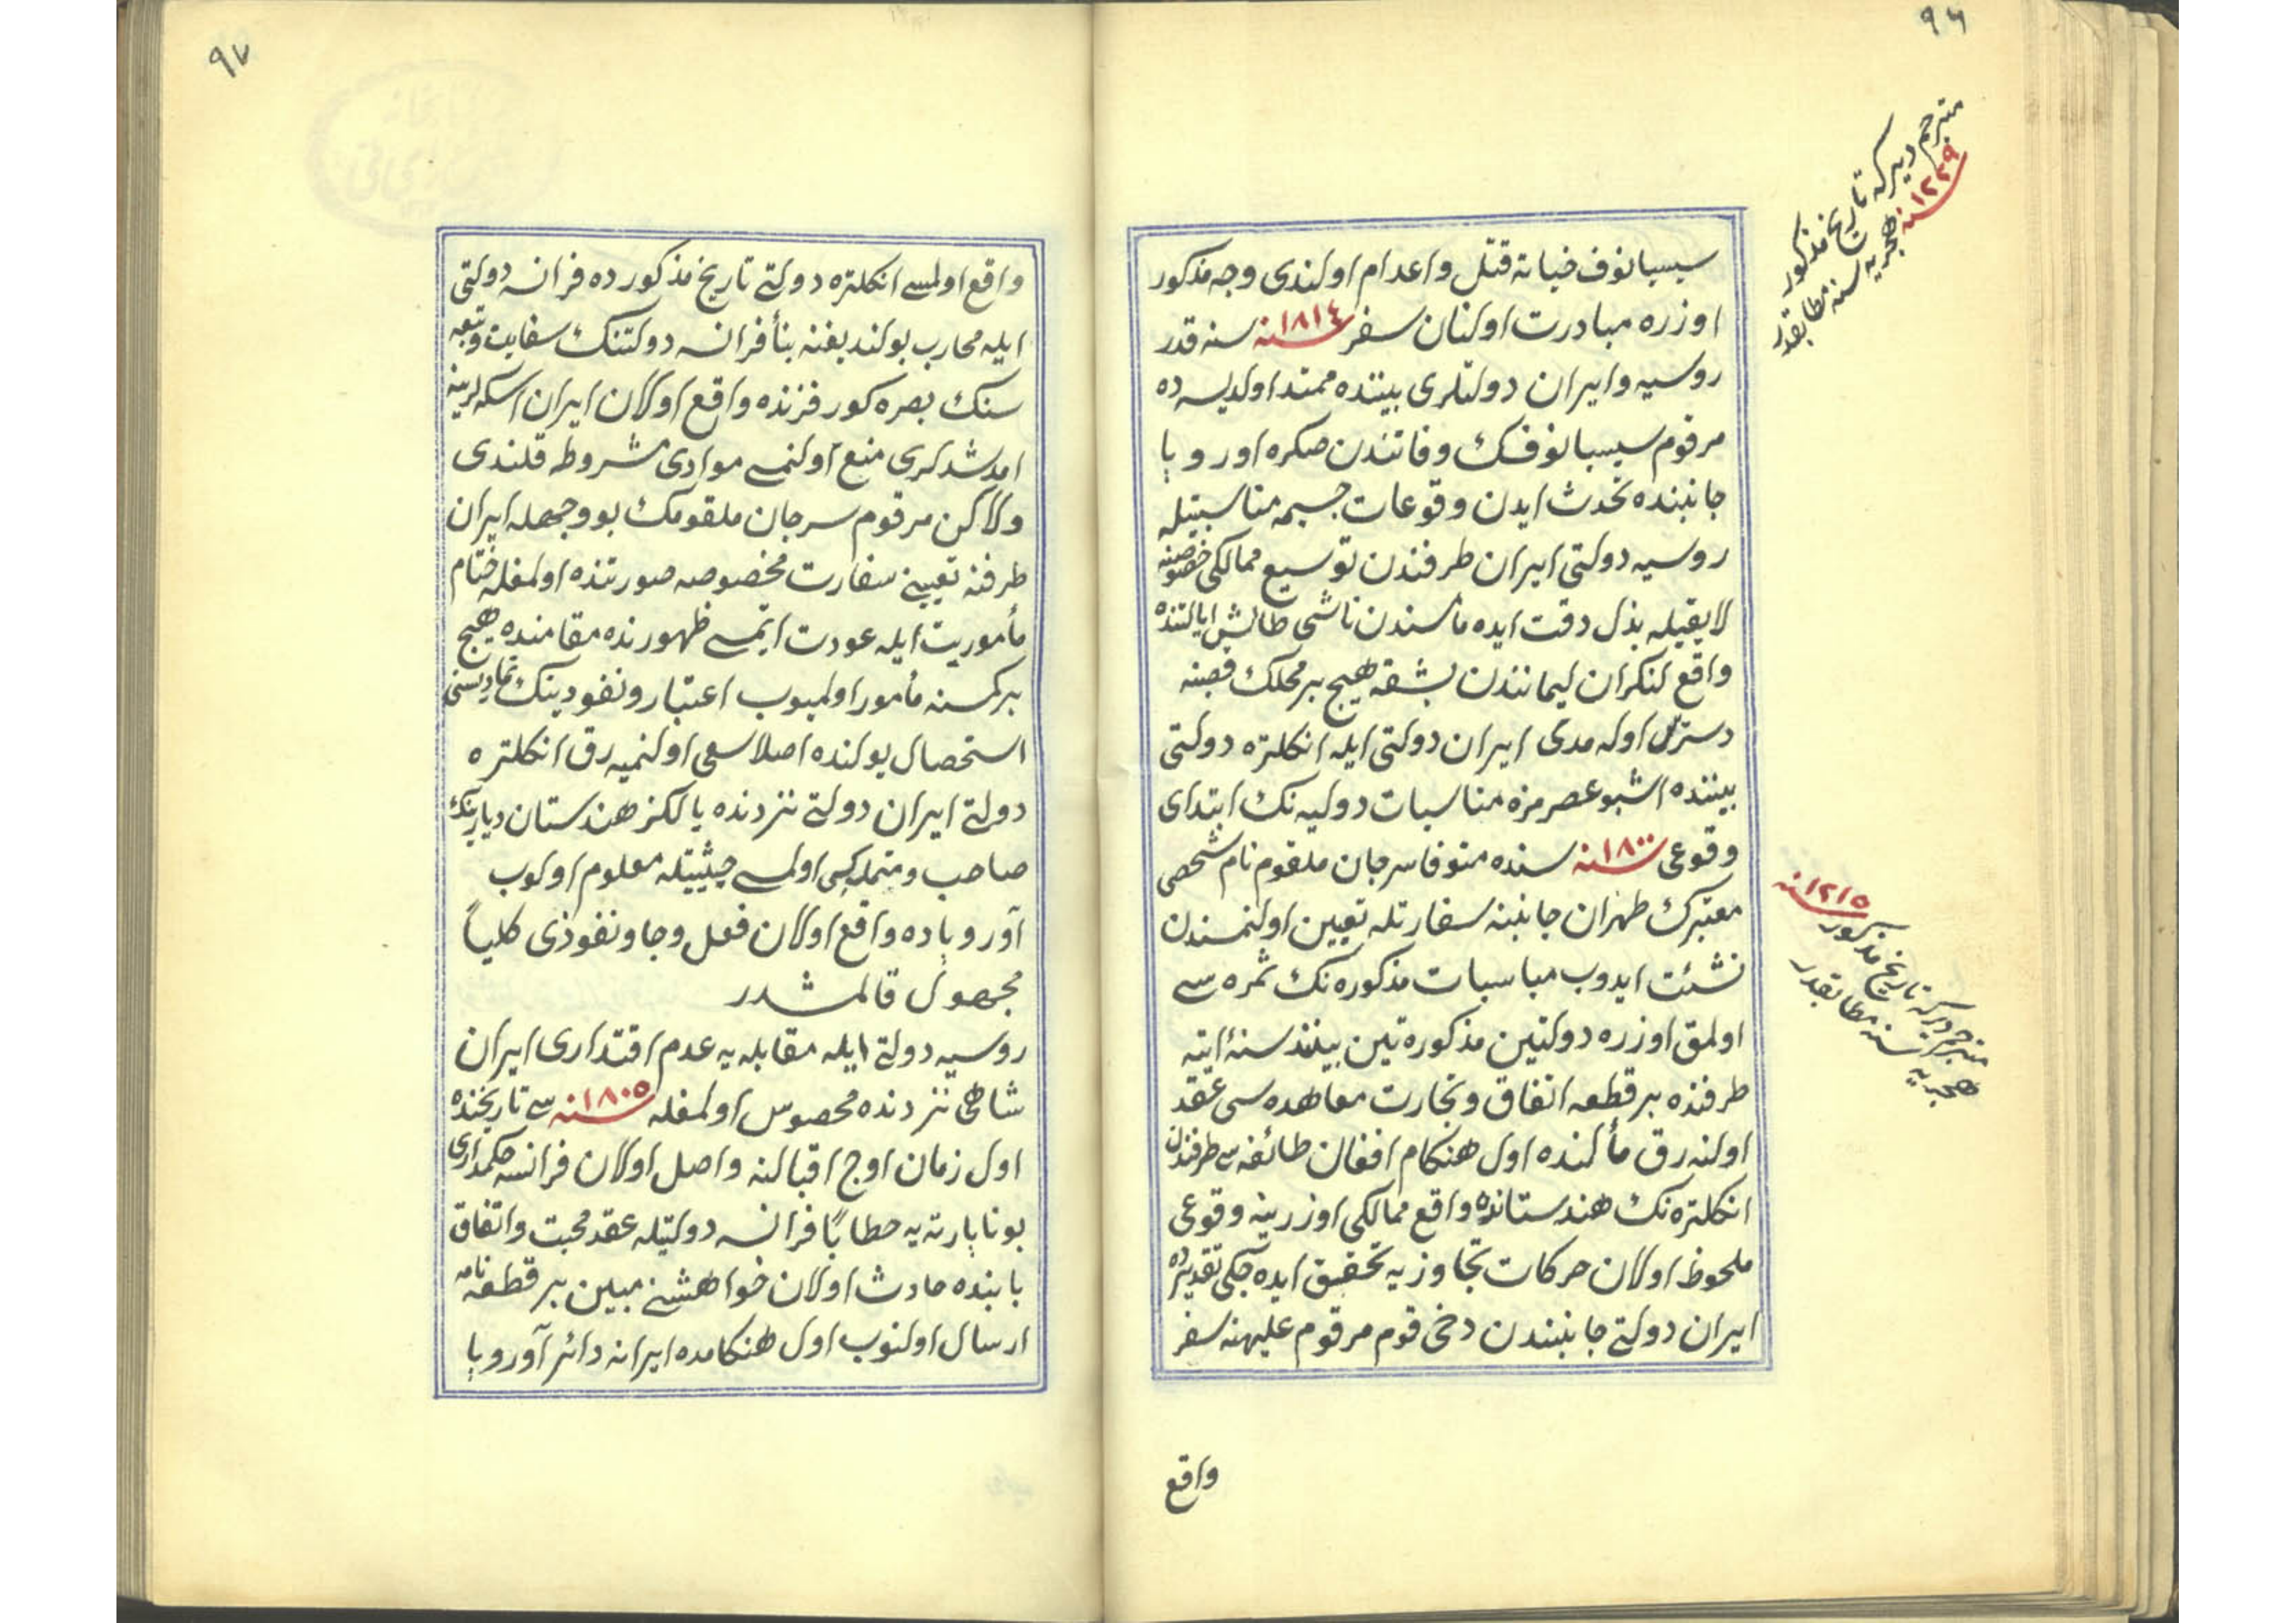 ٩٦
مترجم ديركه تاريخ مذكور
سنه ١٢٢٩ هجريه سنه مطابقدر
سيسيانوف خيانة قتل و اعدام اولندى وجه مذكور
اوزره مبادرت اولنان سفر سنه ١٨١٤ سنه قدر
روسيه و ايران دولتلرى بيننده ممتد اولديسه ده
مرقوم سيسيانوفك وفاتندن صكره اوروپا
جانبنده تحدث ايدن وقوعات جسيمه مناسبتيله
روسيه دولتى ايران طرفندن توسيع ممالكى خصوصنه
لايقيله بذل دقت ايده مامسندن ناشى طالش ايالتنده
واقع لنكران ليمانندن بشقه هيچ بر محلك قبضنه
دسترس اوله مدى ايران دولتى ايله انكلتره دولتى
بيننده اشبو عصرمزه مناسبات دوليه نك ابتداى
وقوعى سنه ١٨٠٠ سنده متوفا سرجان ملقوم نام شخصى
معتبرك طهران جانبنه سفارتله تعيين اولنمسندن
نشئت ايدوب مباسبات مذكوره نك ثمره سى
اولمق اوزره دولتين مذكورتين بيننده سنۀ اتيه
طرفنده بر قطعه اتفاق و تجارت معاهده سى عقد
اولنه رق مألنده اول هنكام افغان طائفه سى طرفندن
انكلتره نك هندستانده واقع ممالكى اوزرينه وقوعى
ملحوظ اولان حركات تجاوزيه تحقيق ايده جكى تقديرده
ايران دولتى جانبندن دخى قوم مرقوم عليهنه سفر
سنه ١٢١٥
مترجم ديركه تاريخ مذكور
هجريه سنه مطابقدر
واقع
٩٧
واقع اولمسى انكلتره دولتى تاريخ مذكورده فرانسه دولتى
ايله محارب بولنديغنه بنأ فرانسه دولتنك سفاين و تبعه
سنك بصره كورفزنده واقع اولان ايران اسكله لرينه
امد شدلرى منع اولنمسى موادى مشروط قلندى
ولاكن مرقوم سرجان ملقومك بو وجهله ايران
طرفنه تعيينى سفارت مخصوصه صورتنده اولمغله ختام
مأموريت ايله عودت ايتمسى ظهورنده مقامنده هيچ
بر كمسنه مأمور اولميوب اعتبار و نفودينك تماديسنى
استحصال يولنده اصلا سعى اولنميه رق انكلتره
دولتى ايران دولتى نزدنده يالكز هندستان ديارينك
صاحب و متملكى اولمسى حيثيتله معلوم اولوب
آوروپاده واقع اولان فعل و جا و نفوذى كلياً
مجهول قالمشدر
روسيه دولتى ايله مقابله يه عدم اقتدارى ايران
شاهى نزدنده محصوس اولمغله سنه ١٨٠٥ سى تاريخنده
اول زمان اوج اقبالنه واصل اولان فرانسه حكمدارى
بوناپارته يه خطاباً فرانسه دولتيله عقد محبت و اتفاق
بابنده حادث اولان خواهشنى مبين بر قطعه نامه
ارسال اولنوب اول هنكامده ايرانه دائر آوروپا